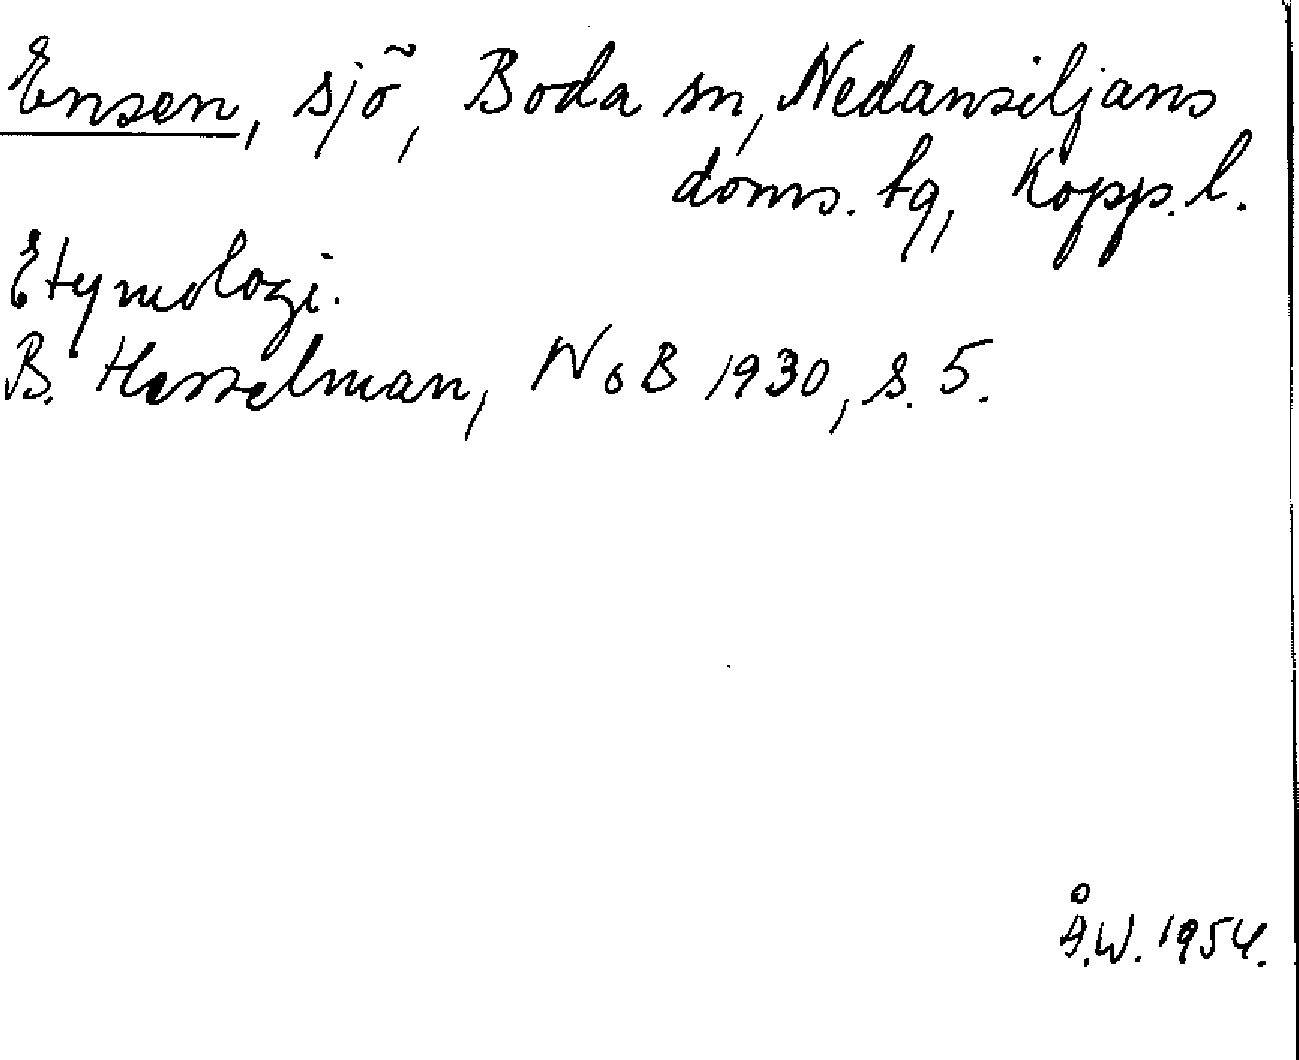 Ensen, sjö, Boda sn, Nedansiljans
doms. tg, Kopp. l.
Etymologi.
B. Hesselman, NoB 1930, s. 5.
Å.W. 1954.